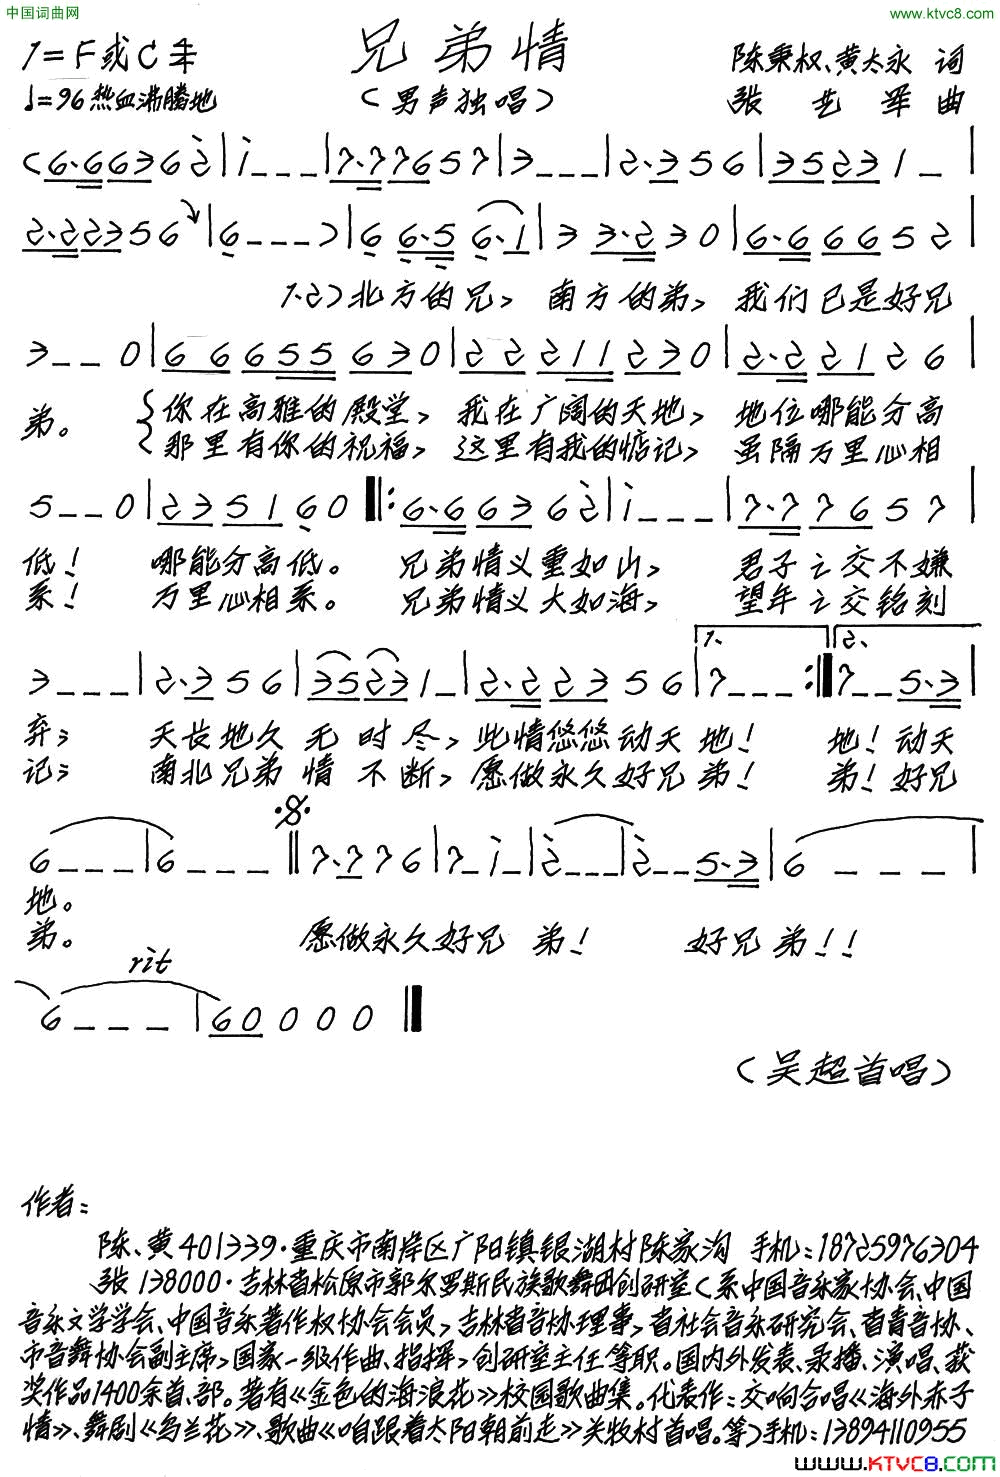 中国词曲网
www.ktvc8.com
1=F或C 4/4
兄弟情
陈秉权、黄太永 词
♩=96 热血沸腾地
(男声独唱)
张艺军 曲
(6·6636 2|1---|7·77657|3---|2·356|35231-|
2·22356|6---)|6 6·5 6·1|3 3·230|6·66652|
1.2)北方的兄, 南方的弟, 我们已是好兄
3--0|66655630|22211230|2·22126|
弟。 你在高雅的殿堂, 我在广阔的天地, 地位哪能分高
那里有你的祝福, 这里有我的惦记, 虽隔万里心相
5--0|235160‖:6·66362|1---|7·77657|
低! 哪能分高低。 兄弟情义重如山, 君子之交不嫌
系! 万里心相系。 兄弟情义大如海, 望年之交铭刻
1. 2.
3---|2·356|35231-|2·22356|7---:‖7--5·3|
弃; 天长地久无时尽, 此情悠悠动天地! 地! 动天
记; 南北兄弟情不断, 愿做永久好兄弟! 弟! 好兄
6---|6---‖7·776|7-1-|2---|2--5·3|6---|
地。
弟。 愿做永久好兄弟! 好兄弟!!
rit
6---|600000‖
(吴超首唱)
作者:
陈、黄401339·重庆市南岸区广阳镇银湖村陈家沟 手机:18725976304
张138000·吉林省松原市郭尔罗斯民族歌舞团创研室(系中国音乐家协会、中国
音乐文学学会、中国音乐著作权协会会员,吉林省音协理事,省社会音乐研究会、省青音协、
市音舞协会副主席,国家一级作曲、指挥,创研室主任等职。国内外发表、录播、演唱、获
奖作品1400余首、部。著有《金色的海浪花》校园歌曲集。代表作:交响合唱《海外赤子
情》、舞剧《乌兰花》、歌曲《咱跟着太阳朝前走》关牧村首唱。等)手机:13894110955
www.KTVC8.com